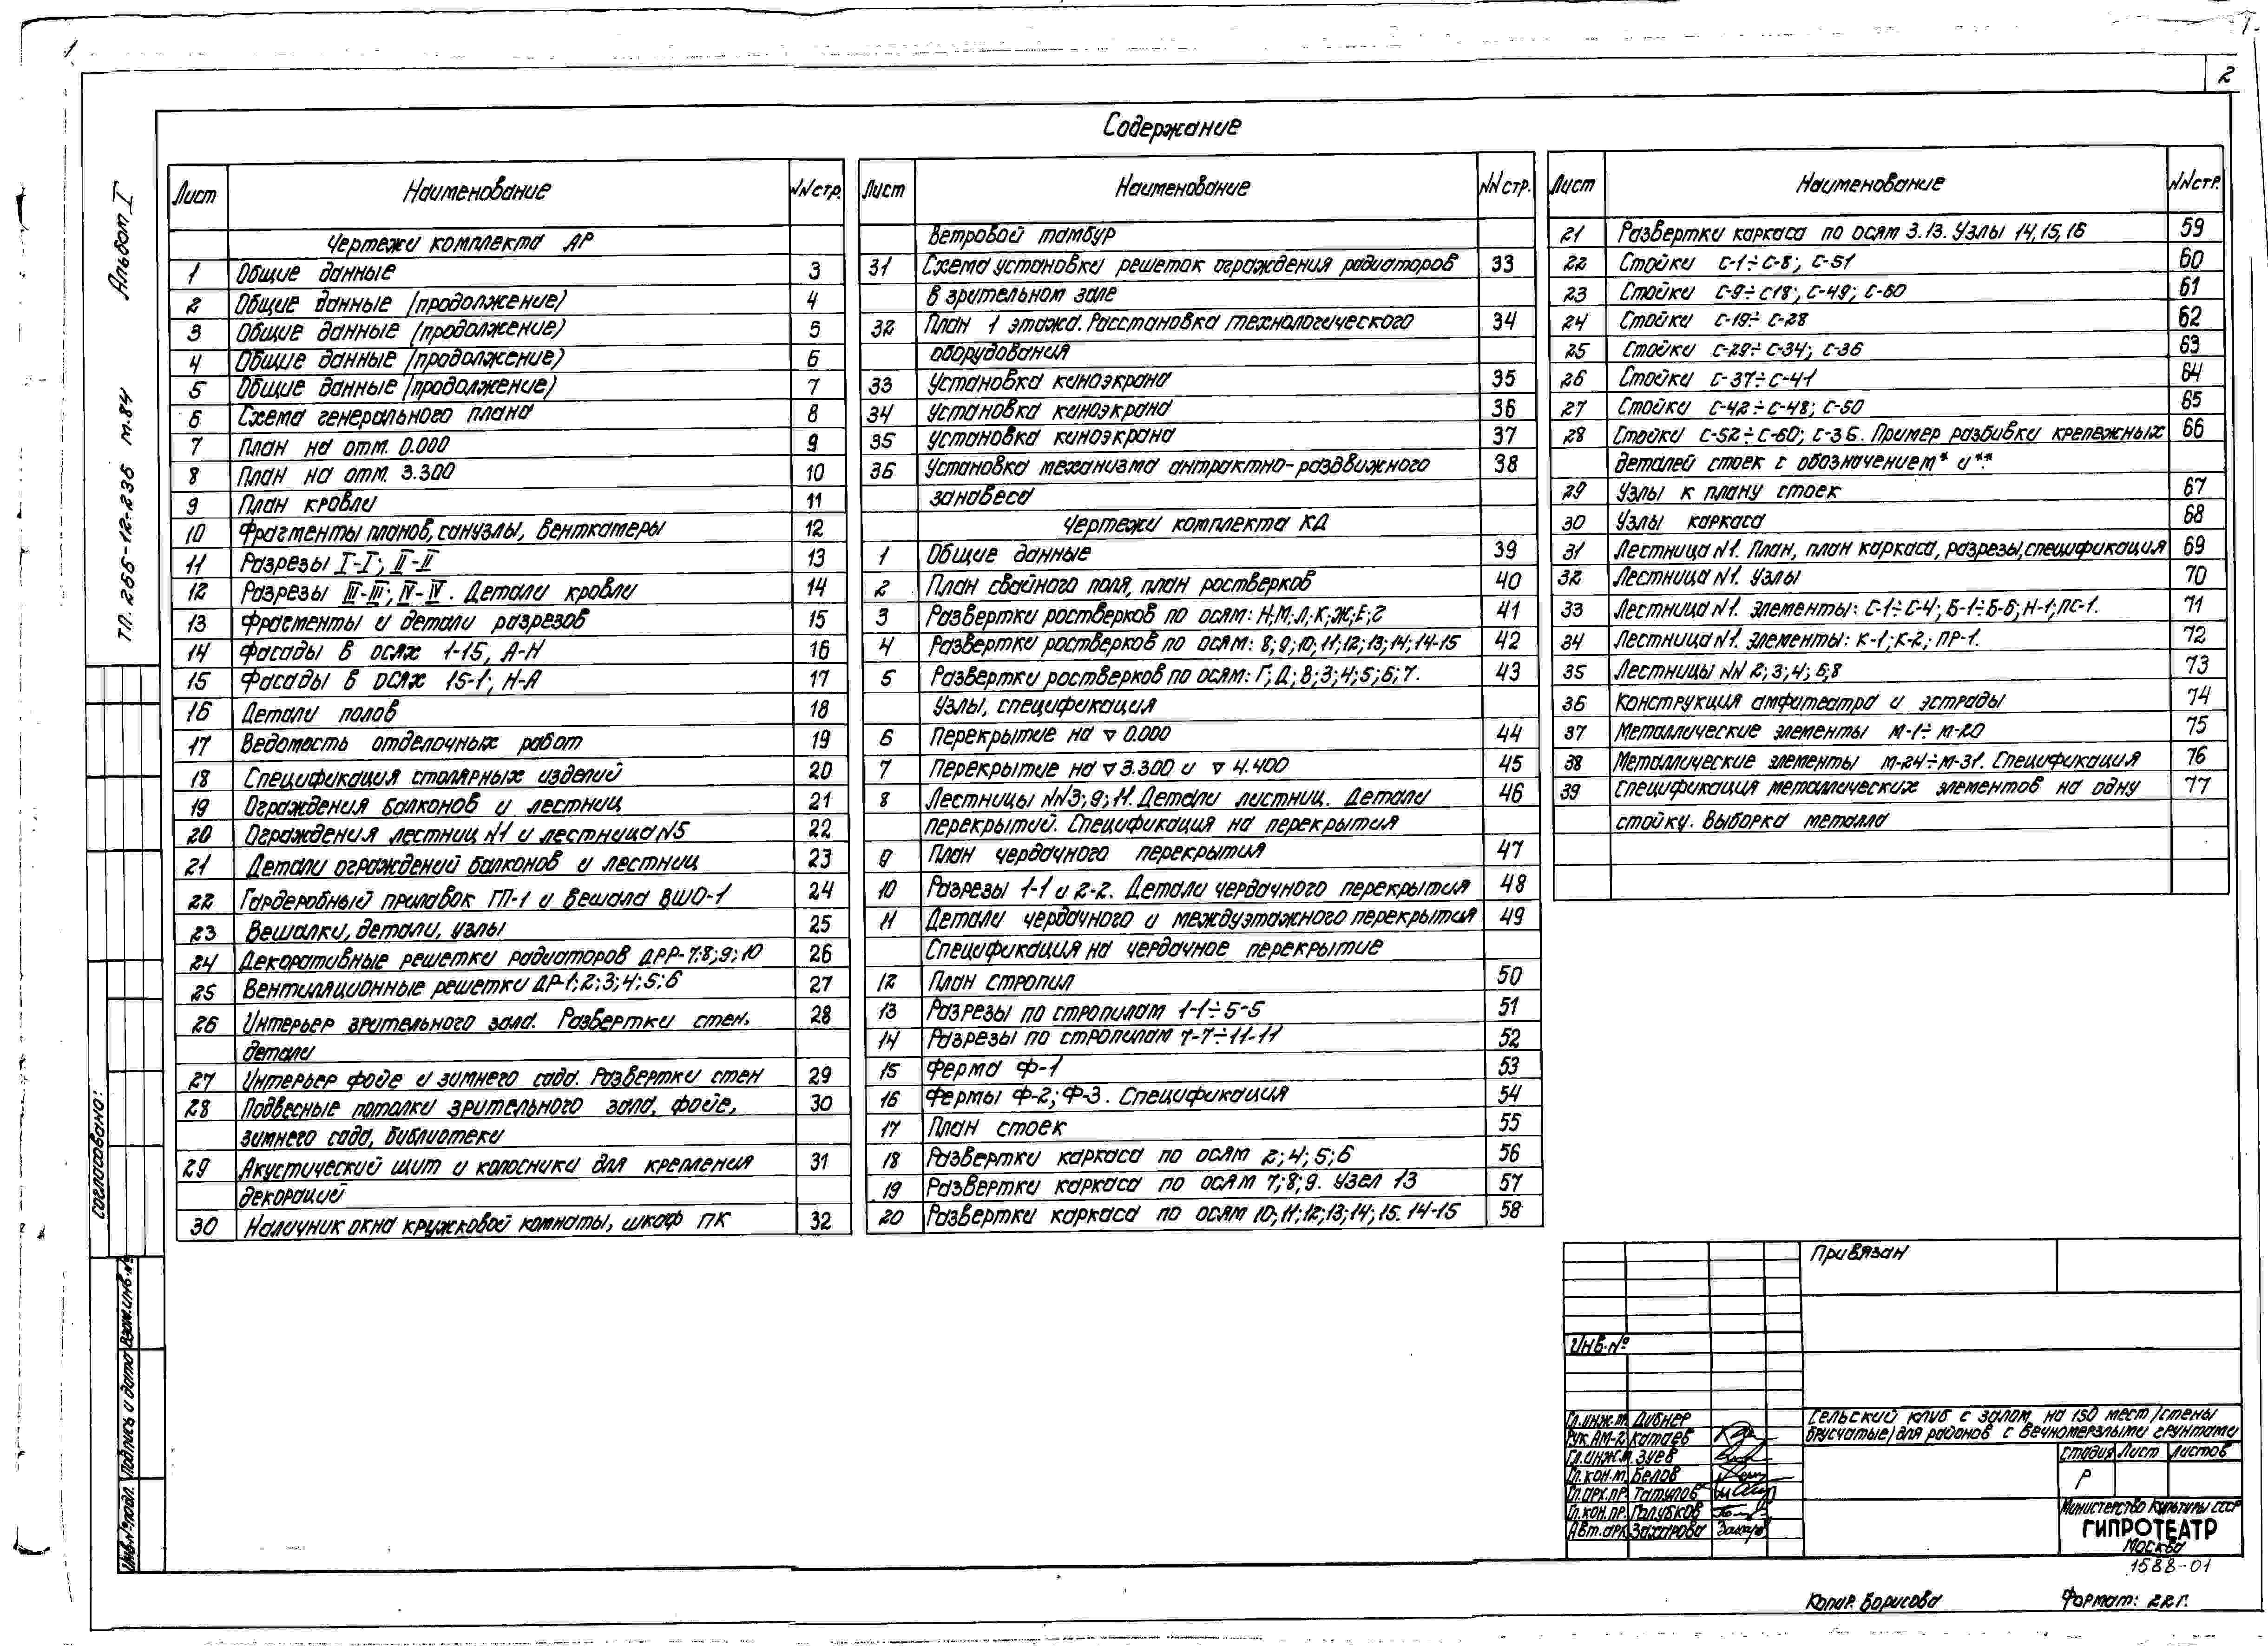 2
Содержание
Альбом I
тп. 266-12-236 м.84
Согласовано:
Взам.инв.№
Подпись и дата
Инв.№подл.
Лист Наименование NNстр.
Чертежи комплекта АР
1 Общие данные 3
2 Общие данные (продолжение) 4
3 Общие данные (продолжение) 5
4 Общие данные (продолжение) 6
5 Общие данные (продолжение) 7
6 Схема генерального плана 8
7 План на отм. 0.000 9
8 План на отм. 3.300 10
9 План кровли 11
10 Фрагменты планов, санузлы, венткамеры 12
11 Разрезы I-I; II-II 13
12 Разрезы III-III; IV-IV. Детали кровли 14
13 Фрагменты и детали разрезов 15
14 Фасады в осях 1-15, А-Н 16
15 Фасады в осях 15-1; Н-А 17
16 Детали полов 18
17 Ведомость отделочных работ 19
18 Спецификация столярных изделий 20
19 Ограждения балконов и лестниц 21
20 Ограждения лестниц N1 и лестница N5 22
21 Детали ограждений балконов и лестниц 23
22 Гардеробный прилавок ГП-1 и вешала ВШО-1 24
23 Вешалки, детали, узлы 25
24 Декоративные решетки радиаторов ДРР-7;8;9;10 26
25 Вентиляционные решетки ДР-1;2;3;4;5;6 27
26 Интерьер зрительного зала. Развертки стен, 28
детали
27 Интерьер фойе и зимнего сада. Развертки стен 29
28 Подвесные потолки зрительного зала, фойе, 30
зимнего сада, библиотеки
29 Акустический щит и колосники для крепления 31
декораций
30 Наличник окна кружковой комнаты, шкаф ПК 32
Лист Наименование NNстр.
Ветровой тамбур
31 Схема установки решеток ограждения радиаторов 33
в зрительном зале
32 План 1 этажа. Расстановка технологического 34
оборудования
33 Установка киноэкрана 35
34 Установка киноэкрана 36
35 Установка киноэкрана 37
36 Установка механизма антрактно-раздвижного 38
занавеса
Чертежи комплекта КД
1 Общие данные 39
2 План свайного поля, план ростверков 40
3 Развертки ростверков по осям: Н;М;Л;К;Ж;Е;Г 41
4 Развертки ростверков по осям: 8;9;10;11;12;13;14;14-15 42
5 Развертки ростверков по осям: Г;Д;В;3;4;5;6;7. 43
Узлы, спецификация
6 Перекрытие на ▽ 0.000 44
7 Перекрытие на ▽ 3.300 и ▽ 4.400 45
8 Лестницы NN3;9;11. Детали листниц. Детали 46
перекрытий. Спецификация на перекрытия
9 План чердачного перекрытия 47
10 Разрезы 1-1 и 2-2. Детали чердачного перекрытия 48
11 Детали чердачного и междуэтажного перекрытия 49
Спецификация на чердачное перекрытие
12 План стропил 50
13 Разрезы по стропилам 1-1÷5-5 51
14 Разрезы по стропилам 7-7÷11-11 52
15 Ферма Ф-1 53
16 Фермы Ф-2; Ф-3. Спецификация 54
17 План стоек 55
18 Развертки каркаса по осям 2;4;5;6 56
19 Развертки каркаса по осям 7;8;9. Узел 13 57
20 Развертки каркаса по осям 10;11;12;13;14;15. 14-15 58
Лист Наименование NNстр.
21 Развертки каркаса по осям 3.13. Узлы 14,15,16 59
22 Стойки С-1÷С-8; С-51 60
23 Стойки С-9÷С18; С-49; С-60 61
24 Стойки С-19÷С-28 62
25 Стойки С-29÷С-34; С-36 63
26 Стойки С-37÷С-41 64
27 Стойки С-42÷С-48; С-50 65
28 Стойки С-52÷С-60; С-36. Пример разбивки крепежных 66
деталей стоек с обозначением* и**
29 Узлы к плану стоек 67
30 Узлы каркаса 68
31 Лестница N1. План, план каркаса, разрезы, спецификация 69
32 Лестница N1. Узлы 70
33 Лестница N1. Элементы: С-1÷С-4; Б-1÷Б-6; Н-1; ПС-1. 71
34 Лестница N1. Элементы: К-1; К-2; ПР-1. 72
35 Лестницы NN 2;3;4;6;8 73
36 Конструкция амфитеатра и эстрады 74
37 Металлические элементы М-1÷М-20 75
38 Металлические элементы М-24÷М-31. Спецификация 76
39 Спецификация металлических элементов на одну 77
стойку. Выборка металла
Привязан
Инв.№
Гл.инж.т. Дибнер
Рук.АМ-2 Катаев
Гл.инж.м. Зуев
Гл.кон.м. Белов
Гл.арх.пр. Татулов
Гл.кон.пр. Голубков
Авт.арх. Захарова
Сельский клуб с залом на 150 мест (стены
брусчатые) для районов с вечномерзлыми грунтами
стадия Лист Листов
Р
Министерство культуры СССР
ГИПРОТЕАТР
Москва
1588-01
Копир. Борисова Формат: 22г.